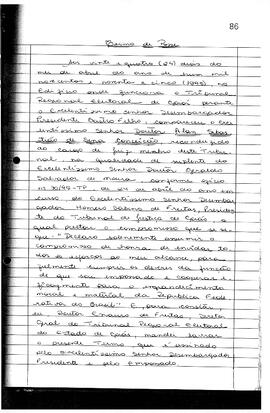 86
Termo de Posse
Aos vinte e quatro (24) dias do
mês de abril do ano de hum mil
novecentos e noventa e cinco (1995), no
Edifício onde funciona o Tribunal
Regional Eleitoral de Goiás perante
o Excelentíssimo Senhor Desembargador
Presidente Castro Filho, compareceu o Exce
lentíssimo Senhor Doutor Alan Sebas
tião de Sena Conceição, reconduzido
ao cargo de Juiz membro deste Tribu
nal na qualidade de suplente do
Excelentíssimo Senhor Doutor Geraldo
Salvador de Moura, conforme ofício
de abril do ano em
curso do Excelentíssimo Senhor Desembar
gador Homero Sabino de Freitas, Presiden
te do Tribunal de Justiça de Goiás, o
qual prestou o compromisso que se se
gue: "Declaro solenemente assumir o
compromisso de honra de envidar to
dos os esforços ao meu alcance, para
fielmente cumprir os deveres da função
de que sou empossado e cooperar e
ficazmente para o engrandecimento
moral e material da República Fede
rativa do Brasil". E, para constar,
eu Doutor de Freitas, Diretor
Geral do Tribunal Regional Eleitoral
do Estado de Goiás, mandei lavrar
o presente Termo que é assinado
pelo Excelentíssimo Senhor Desembargador
Presidente e pelo empossado.